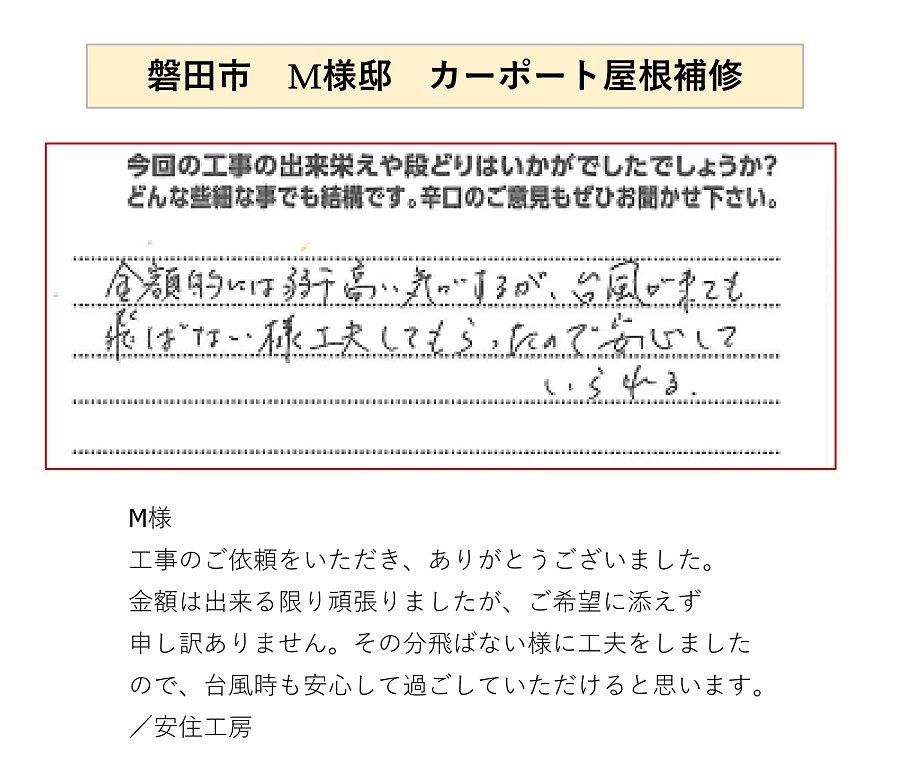 磐田市　M様邸　カーポート屋根補修
今回の工事の出来栄えや段どりはいかがでしたでしょうか?
どんな些細な事でも結構です。辛口のご意見もぜひお聞かせ下さい。
金額的には若干高い気がするが、台風が来ても
飛ばない様工夫してもらったので安心して
いられる.
M様
工事のご依頼をいただき、ありがとうございました。
金額は出来る限り頑張りましたが、ご希望に添えず
申し訳ありません。その分飛ばない様に工夫をしました
ので、台風時も安心して過ごしていただけると思います。
／安住工房